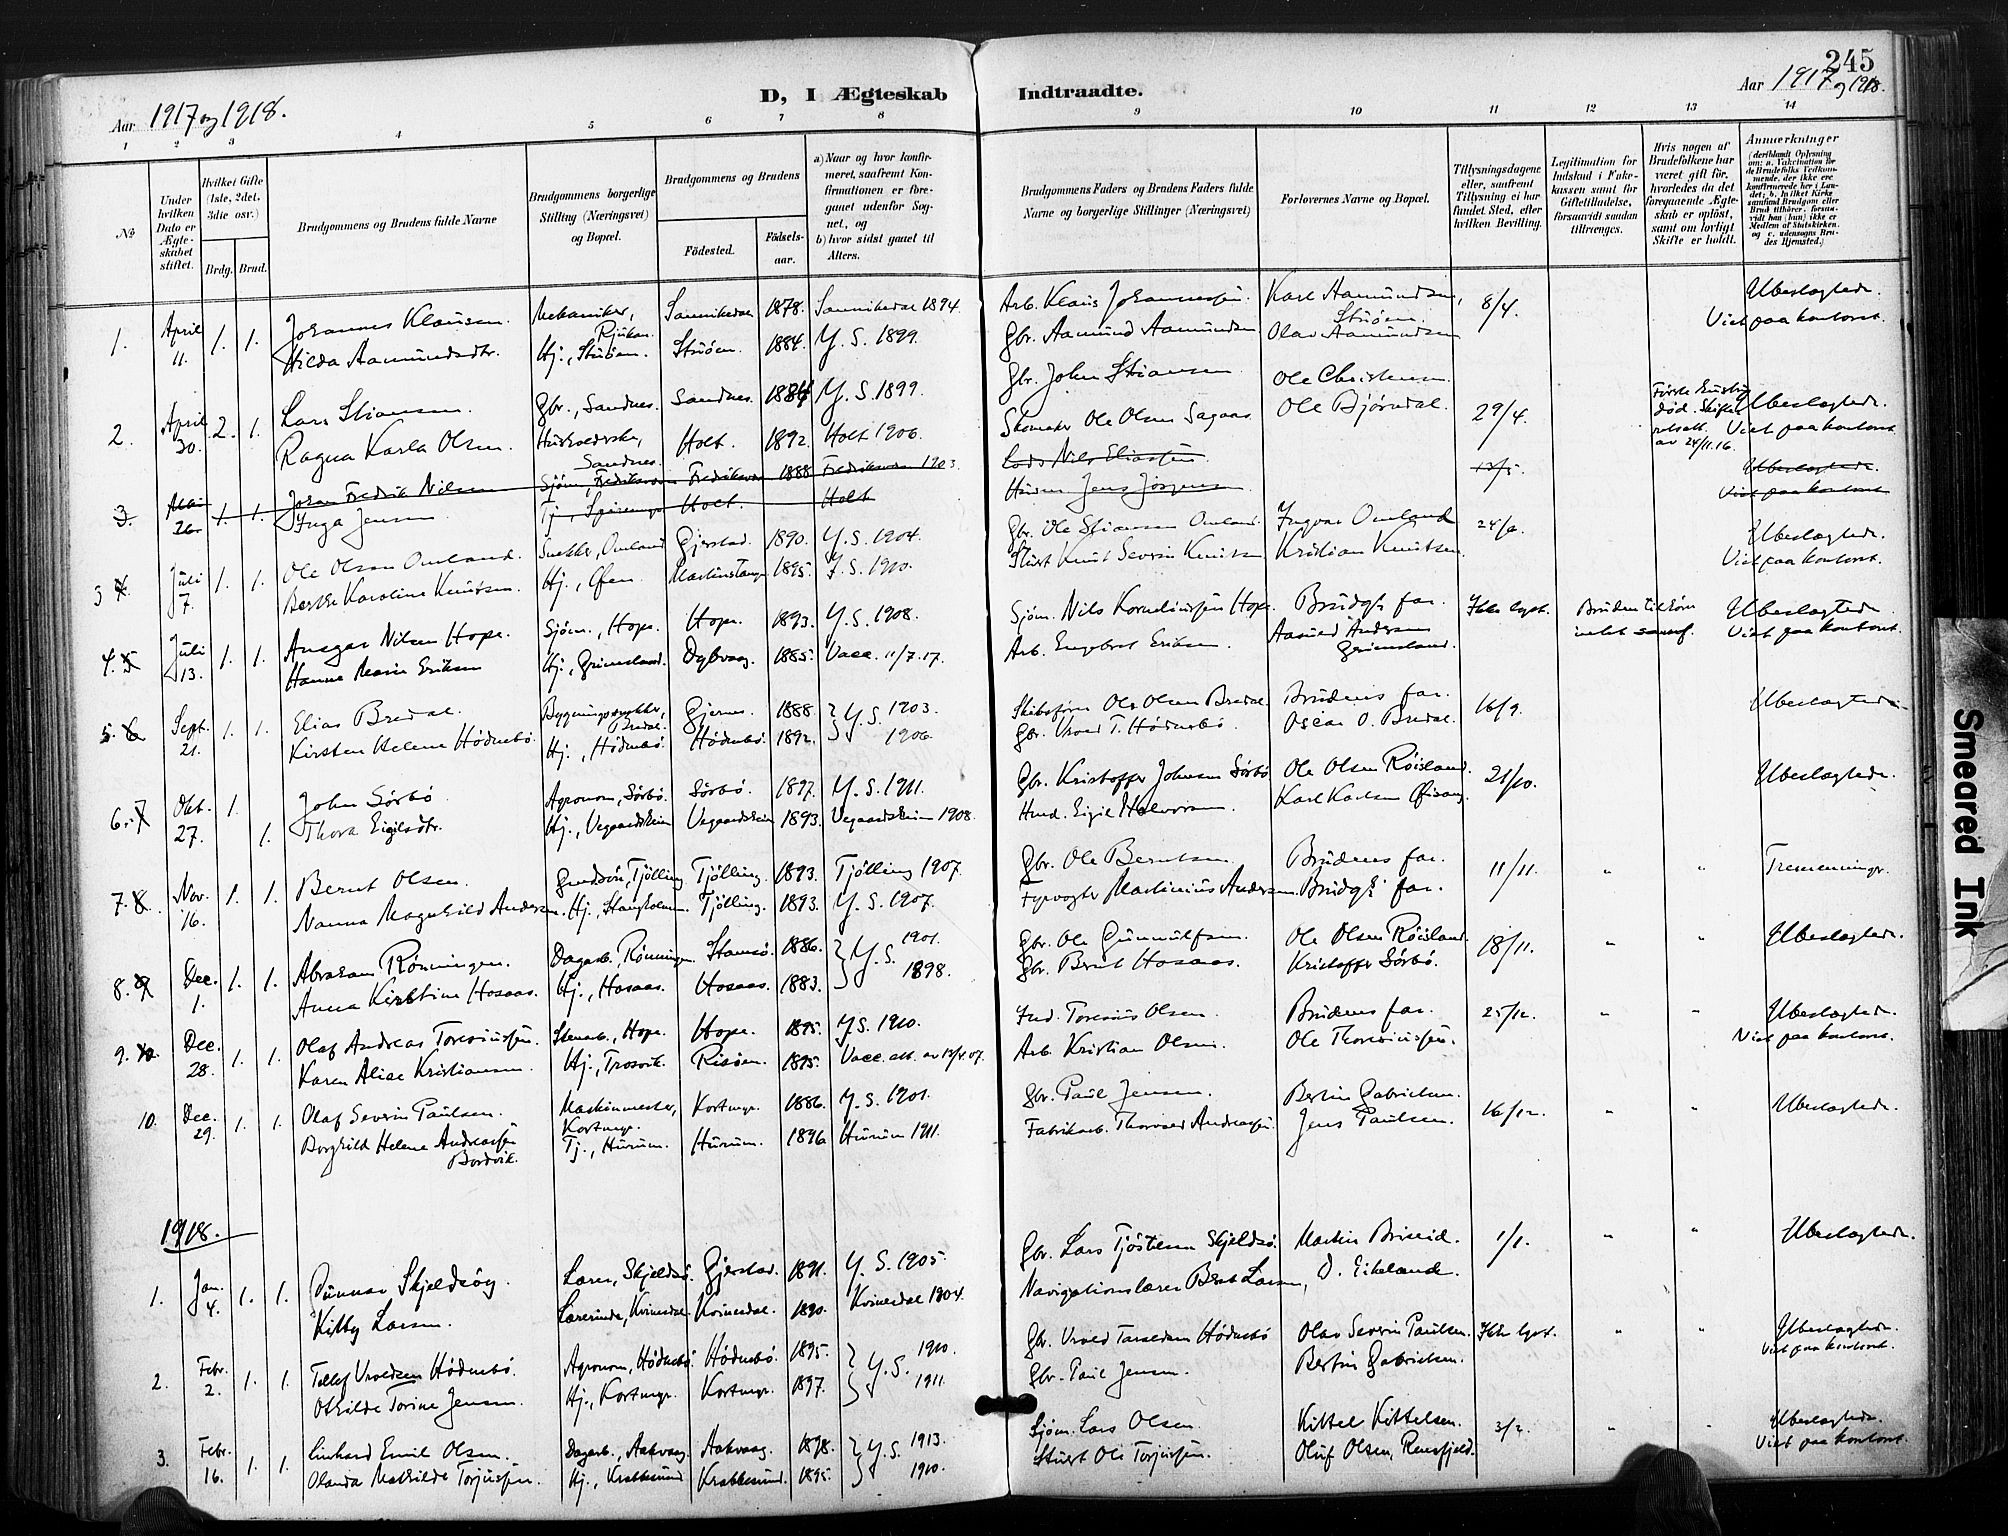 245
Aar 1917 og 1918.
D, I Ægteskab Indtraadte.
Aar 1917 og 1918.
1 2 3 4 5 6 7 8 9 10 11 12 13 14
No
Under hvilken Dato er Ægteskabet stiftet.
Hvilket Gifte (1ste, 2det, 3die osv.)
Brdg. Brud.
Brudgommens og Brudens fulde Navne
Brudgommens borgerlige Stilling (Næringsvei) og Bopæl.
Brudgommens og Brudens
Fødested.
Fødselsaar.
a) Naar og hvor konfirmeret, saafremt Konfirmationen er foregaaet udenfor Sognet, og
b) hvor sidst gaaet til Alters.
Brudgommens Faders og Brudens Faders fulde Navne og borgerlige Stillinger (Næringsvei)
Forlovernes Navne og Bopæl.
Tillysningsdagene eller, saafremt Tillysning ei har fundet Sted, efter hvilken Bevilling.
Legitimation for Indskud i Enkekassen samt for Giftetilladelse, forsaavidt saadan tiltrænges.
Hvis nogen af Brudefolkene har været gift før, hvorledes da det foregaaende Ægteskab er opløst, samt om lovligt Skifte er holdt.
Anmerkninger
(deriblandt Oplysning om: a. Vakcination for de Brudefolks Vedkommende, der ikke ere konfirmerede her i Landet; b. hvilket Kirkesamfund Brudgom eller Brud tilhører, forsaavidt han (hun) ikke er Medlem af Statskirken, og c. udensogns Brudes Hjemsted.)
1. April 11. 1. 1. Johannes Klausen. Mekaniker, Rjukan. Sannikedal 1878. Sannikedal 1894. Arb. Klaus Johannessen. Karl Aamundsen, Støen. 8/4. Ubeslagtede.
Hilda Aamundsdtr. Hj., Støen. Støen. 1884. Y. S. 1899. Gbr. Aamund Aamundsen Olav Aamundsen Viet paa kontoret.
2. April 30. 2. 1. Lars Stiansen. Gbr., Sandnes. Sandnes. 1884 Y. S. 1899. Gbr. John Stiansen Ole Christensen 29/4. Første hustru død. Skifte av 24/11.16. Ubeslagtede.
Ragna Karla Olsen. Husholderske, Sandnes. Holt. 1892. Holt 1906. Skomaker Ole Olsen Sagaas Ole Bjørndal. Viet paa kontoret
3. Mai 26. 1. 1. Johan Fredrik Nilsen Sjøm., Fredriksvern Fredriksvern 1888 Fredriksvern 1903. Lods Nils Eliassen 13/5. Ubeslagtede.
Inga Jensen Tj., Holt. Holt Jens Jørgensen Viet paa kontoret
3 4 Juli 7. 1. 1. Ole Olsen Omland. Snekker, Omland Gjerstad. 1890. Y. S. 1904. Gbr. Ole Stiansen Omland. Ingvar Omland 24/6. Ubeslagtede.
Berthe Karoline Knutsen. Hj., Martinstange 1895. Y. S. 1910. Stuert Knut Severin Knutsen Kristian Knutsen. Viet paa kontoret.
4. 5 Juli 13. 1. 1. Ansgar Nilsen Hope. Sjøm., Hope. Hope. 1893. Y. S. 1908. Sjøm. Nils Korneliussen Hope. Brudg's far. Ikke lyst. Bruden tilhører intet samf. Ubeslagtede.
Hanna Marie Eriksen Hj., Grimsland. Dybvaag. 1885. Vacc. 11/7.17. Arb. Engebret Eriksen. Aasuld Andersen Grimsland. Viet paa kontoret.
5. 6 Sept. 21. 1. 1. Elias Bredal. Bygningssnekker, Bredal. Gjernes. 1888. Y. S. 1903. Skibsfører Ole Olsen Bredal Brudens far. 16/9. Ubeslagtede.
Kirsten Helene Hødnebø. Hj., Hødnebø. Hødnebø. 1892. 1906. Gbr. Vroed T. Hødnebø Oscar O. Bredal.
6. 7 Okt. 27. 1. John Sørbø Agronom, Sørbø. Sørbø. 1897. Y. S. 1911. Gbr. Kristoffer Johnsen Sørbø Ole Olsen Røisland. 21/10. Ubeslagtede.
1. Thora Eigilsdtr. Hj., Vegaardsheien Vegaardsheien 1893. Vegaardsheien 1908. Eigil Halvorsen. Karl Karlsen
7. 8. Nov. 16. 1. 1. Bernt Olsen. Gaardsøn, Tjølling Tjølling. 1893. Tjølling 1907. Gbr. Ole Berntsen. Brudens far. 11/11. " " Tremenninger.
Nanna Magnhild Andersen. Hj., Stangholmen. Tjølling. 1893. Y. S. 1907. Fyrvogter Martinius Andersen. Brudg's far.
8. 9 Dec. 1. 1. 1. Abraham Rønningen. Dagarb. Rønningen. Stamsø. 1886. Y. S. 1901. Gbr. Ole Gunnulfsen. Ole Olsen Røisland. 18/11. " " Ubeslagtede.
Anna Kirstine Hosaas. Hj., Hosaas. Hosaas. 1883. 1898. Gbr. Bernt Hosaas. Kristoffer Sørbø.
9. 10. Dec. 28. 1. 1. Olaf Andreas Toresiussen. Stenarb., Hope. Hope. 1895. Y. S. 1910. Ind. Toresius Olsen. Brudens far. 25/12. " " Ubeslagtede.
Karen Alise Kristiansen. Hj., Trosvik. Risøen. 1895. Vacc. att. av 13/4.07. Arb. Kristian Olsen. Ole Thoresiussen. Viet paa kontoret.
10. Dec. 29. 1. 1. Olaf Severin Paulsen. Maskinmester, Kortmyr. Kortmyr. 1886. Y. S. 1901. Gbr. Paul Jensen. Bertin Gabrielsen. 16/12. " " Ubeslagtede.
Borghild Helene Andreassen Bordvik. Tj., Hurum. Hurum. 1896 Hurum 1911. Fabrikarb. Thorvald Andreassen. Jens Paulsen.
1918.
1. Jan. 4. 1. 1. Gunnar Skjeldsøy. Lærer, Skjeldsø. Gjerstad. 1891. Y. S. 1905. Gbr. Lars Tjøstelsen Skjeldsø. Martin Briseid. 1/1. " " Ubeslagtede.
Kitty Larsen. Lærerinde, Kvinesdal. Kvinesdal. 1890. Kvinesdal 1904. Navigationslærer Bernt Larsen, O. Eikeland.
2. Febr. 2. 1. 1. Tellef Vroldsen Hødnebø. Agronom, Hødnebø. Hødnebø. 1895. Y. S. 1910. Gbr. Vroed Tarjeldsen Hødnebø Olav Severin Paulsen. Ikke lyst. " " Ubeslagtede.
Othilde Torine Jensen. Hj., Kortmyr. Kortmyr. 1897. 1911. Gbr. Paul Jensen. Bertin Gabrielsen. Viet paa kontoret.
3. Febr. 16. 1. 1. Linhard Emil Olsen. Dagarb., Aakvaag Aakvaag. 1898. Y. S. 1913. Sjøm. Lars Olsen Kittel Kittelsen. 3/2. " " Ubeslagtede.
Olanda Mathilde Torjussen. Hj., Krabbesund Krabbesund. 1895. 1910. Stuert Ole Torjussen. Oluf Olsen, Rensfjeld. Viet paa kontoret.
Smeared Ink